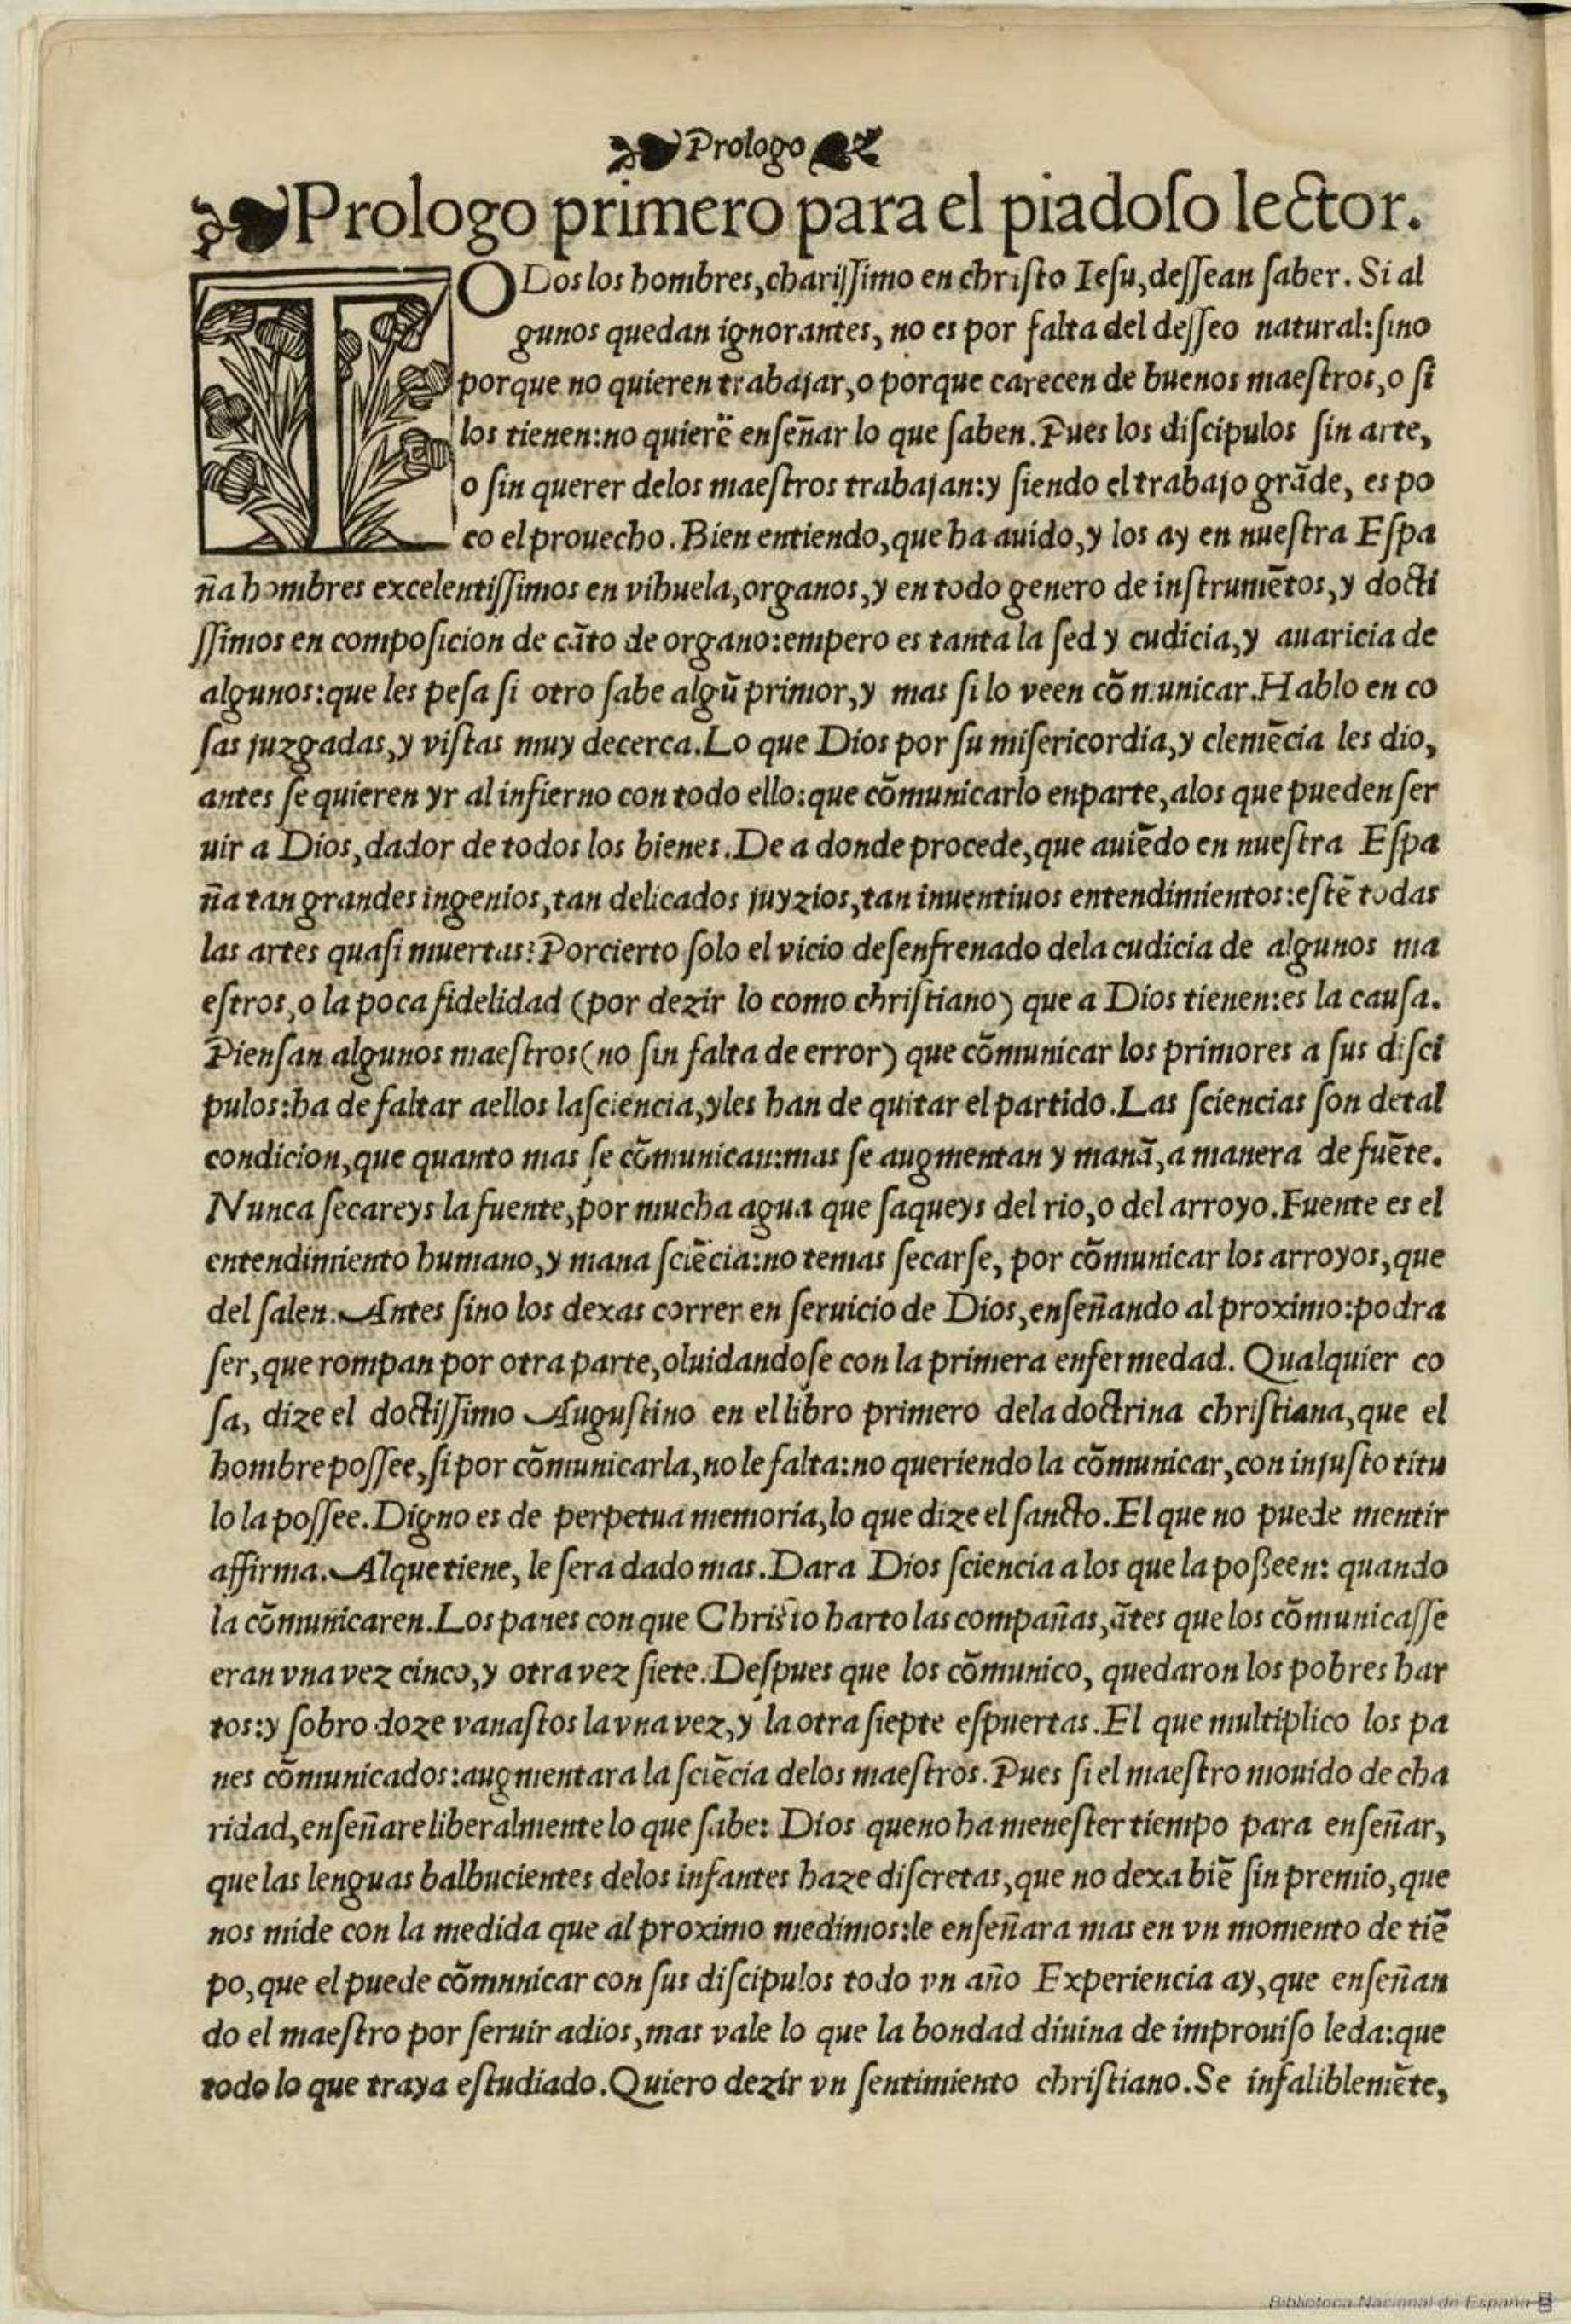 Prologo
Prologo primero para el piadoſo lector.
TODos los hombres, chariſſimo en chriſto Ieſu, deſſean ſaber. Si al
gunos quedan ignorantes, no es por falta del deſſeo natural: ſino
porque no quieren trabajar, o porque carecen de buenos maeſtros, o ſi
los tienen: no quierẽ enſeñar lo que ſaben. Pues los diſcipulos ſin arte,
o ſin querer delos maeſtros trabajan: y ſiendo el trabajo grãde, es po
co el prouecho. Bien entiendo, que ha auido, y los ay en nueſtra Eſpa
ña hombres excelentiſſimos en vihuela, organos, y en todo genero de inſtrumẽtos, y docti
ſſimos en compoſicion de cãto de organo: empero es tanta la ſed y cudicia, y auaricia de
algunos: que les peſa ſi otro ſabe algũ primor, y mas ſi lo veen cõmunicar. Hablo en co
ſas juzgadas, y viſtas muy decerca. Lo que Dios por ſu miſericordia, y clemẽcia les dio,
antes ſe quieren yr al infierno con todo ello: que cõmunicarlo enparte, alos que pueden ſer
uir a Dios, dador de todos los bienes. De a donde procede, que auiẽdo en nueſtra Eſpa
ña tan grandes ingenios, tan delicados juyzios, tan inuentiuos entendimientos: eſtẽ todas
las artes quaſi muertas? Porcierto ſolo el vicio deſenfrenado dela cudicia de algunos ma
eſtros, o la poca fidelidad (por dezir lo como chriſtiano) que a Dios tienen: es la cauſa.
Pienſan algunos maeſtros (no ſin falta de error) que cõmunicar los primores a ſus diſci
pulos: ha de faltar aellos laſciencia, yles han de quitar el partido. Las ſciencias ſon detal
condicion, que quanto mas ſe cõmunican: mas ſe augmentan y manã, a manera de fuẽte.
Nunca ſecareys la fuente, por mucha agua que ſaqueys del rio, o del arroyo. Fuente es el
entendimiento humano, y mana ſciẽcia: no temas ſecarſe, por cõmunicar los arroyos, que
del ſalen. Antes ſino los dexas correr en ſeruicio de Dios, enſeñando al proximo: podra
ſer, que rompan por otra parte, oluidandoſe con la primera enfermedad. Qualquier co
ſa, dize el doctiſſimo Auguſtino en el libro primero dela doctrina chriſtiana, que el
hombre poſſee, ſi por cõmunicarla, no le falta: no queriendo la cõmunicar, con injuſto titu
lo la poſſee. Digno es de perpetua memoria, lo que dize el ſancto. El que no puede mentir
affirma. Alque tiene, le ſera dado mas. Dara Dios ſciencia a los que la poßeen: quando
la cõmunicaren. Los panes con que Chriſto harto las compañas, ãtes que los cõmunicaſſe
eran vna vez cinco, y otra vez ſiete. Deſpues que los cõmunico, quedaron los pobres har
tos: y ſobro doze vanaſtos la vna vez, y la otra ſiepte eſpuertas. El que multiplico los pa
nes cõmunicados: augmentara la ſciẽcia delos maeſtros. Pues ſi el maeſtro mouido de cha
ridad, enſeñare liberalmente lo que ſabe: Dios que no ha meneſter tiempo para enſeñar,
que las lenguas balbucientes delos infantes haze diſcretas, que no dexa biẽ ſin premio, que
nos mide con la medida que al proximo medimos: le enſeñara mas en vn momento de tiẽ
po, que el puede cõmnnicar con ſus diſcipulos todo vn año Experiencia ay, que enſeñan
do el maeſtro por ſeruir adios, mas vale lo que la bondad diuina de improuiſo leda: que
todo lo que traya eſtudiado. Quiero dezir vn ſentimiento chriſtiano. Se infaliblemẽte,
Biblioteca Nacional de España